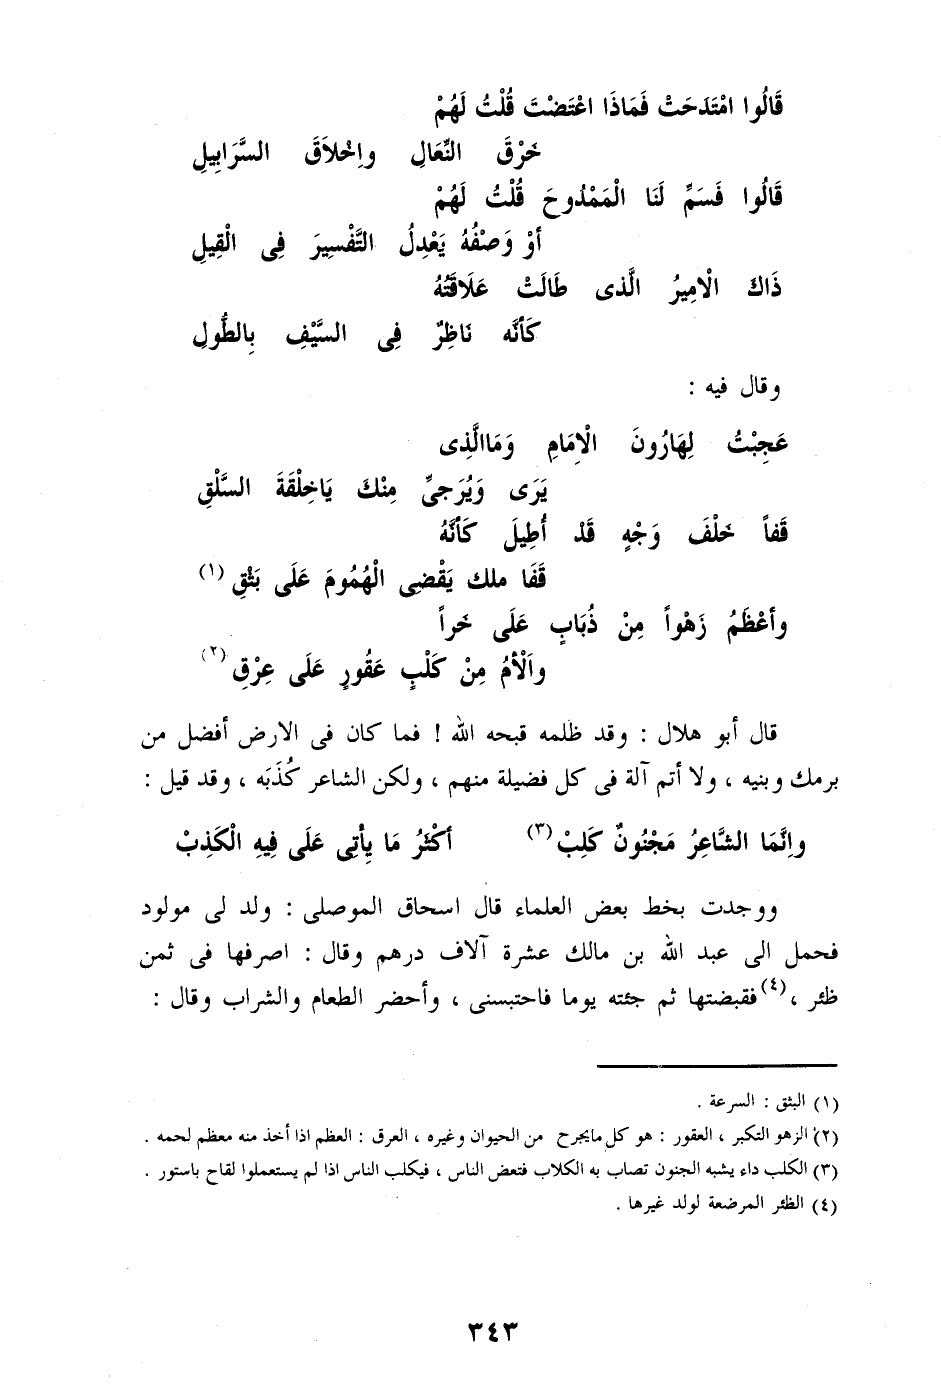 قَالُوا امْتَدَحَتْ فَمَاذَا اعْتَضْتَ قُلْتُ لَهُمْ
خَرْقَ النِّعَالِ وإخْلاَقَ السَّرَابِيلِ
قَالُوا فَسَمِّ لَنَا الْمَمْدُوحَ قُلْتُ لَهُمْ
أوْ وَصْفُهُ يَعْدِلُ التَّفْسِيرَ فِى الْقِيلِ
ذَاكَ الْامِيرُ الَّذى طَالَتْ عَلَاقَتُهُ
كَأنَّه نَاظِرٌ فِى السَّيْفِ بِالطُّولِ
وقال فيه :
عَجِبْتُ لِهَارُونَ الْاِمَامِ وَمَاالَّذِى
يَرَى وَيُرَجىِّ مِنْكَ يَاخِلْقَةَ السَّلْقِ
قَفاً خَلْفَ وَجْهٍ قَدْ أُطِيلَ كَأنَّهُ
قَفَا ملك يَقْضِى الْهُمُومَ عَلَى بَثْقِ (١)
وأعْظَمُ زَهْواً مِنْ ذُبَابٍ عَلَى خَراً
واَلْأمُ مِنْ كَلْبٍ عَقُورٍ عَلَى عِرْقِ (٢)
قال أبو هلال : وقد ظلمه قبحه الله ! فما كان فى الارض أفضل من
برمك وبنيه ، ولا أتم آلة فى كل فضيلة منهم ، ولكن الشاعر كُذَبَه ، وقد قيل :
وإنَّمَا الشَّاعِرُ مَجْنُونٌ كَلِبْ (٣) أكْثَرُ مَا يِأْتِى عَلَى فِيهِ الْكَذِبْ
ووجدت بخط بعض العلماء قال اسحاق الموصلى : ولد لى مولود
فحمل الى عبد الله بن مالك عشرة آلاف درهم وقال : اصرفها فى ثمن
ظئر ، (٤) فقبضتها ثم جئته يوما فاحتبسنى ، وأحضر الطعام والشراب وقال :
(١) البثق : السرعة .
(٢) الزهو التكبر ، العقور : هو كل مايجرح من الحيوان وغيره ، العرق : العظم اذا أخذ منه معظم لحمه .
(٣) الكلب داء يشبه الجنون تصاب به الكلاب فتعض الناس ، فيكلب الناس اذا لم يستعملوا لقاح باستور .
(٤) الظئر المرضعة لولد غيرها .
٣٤٣